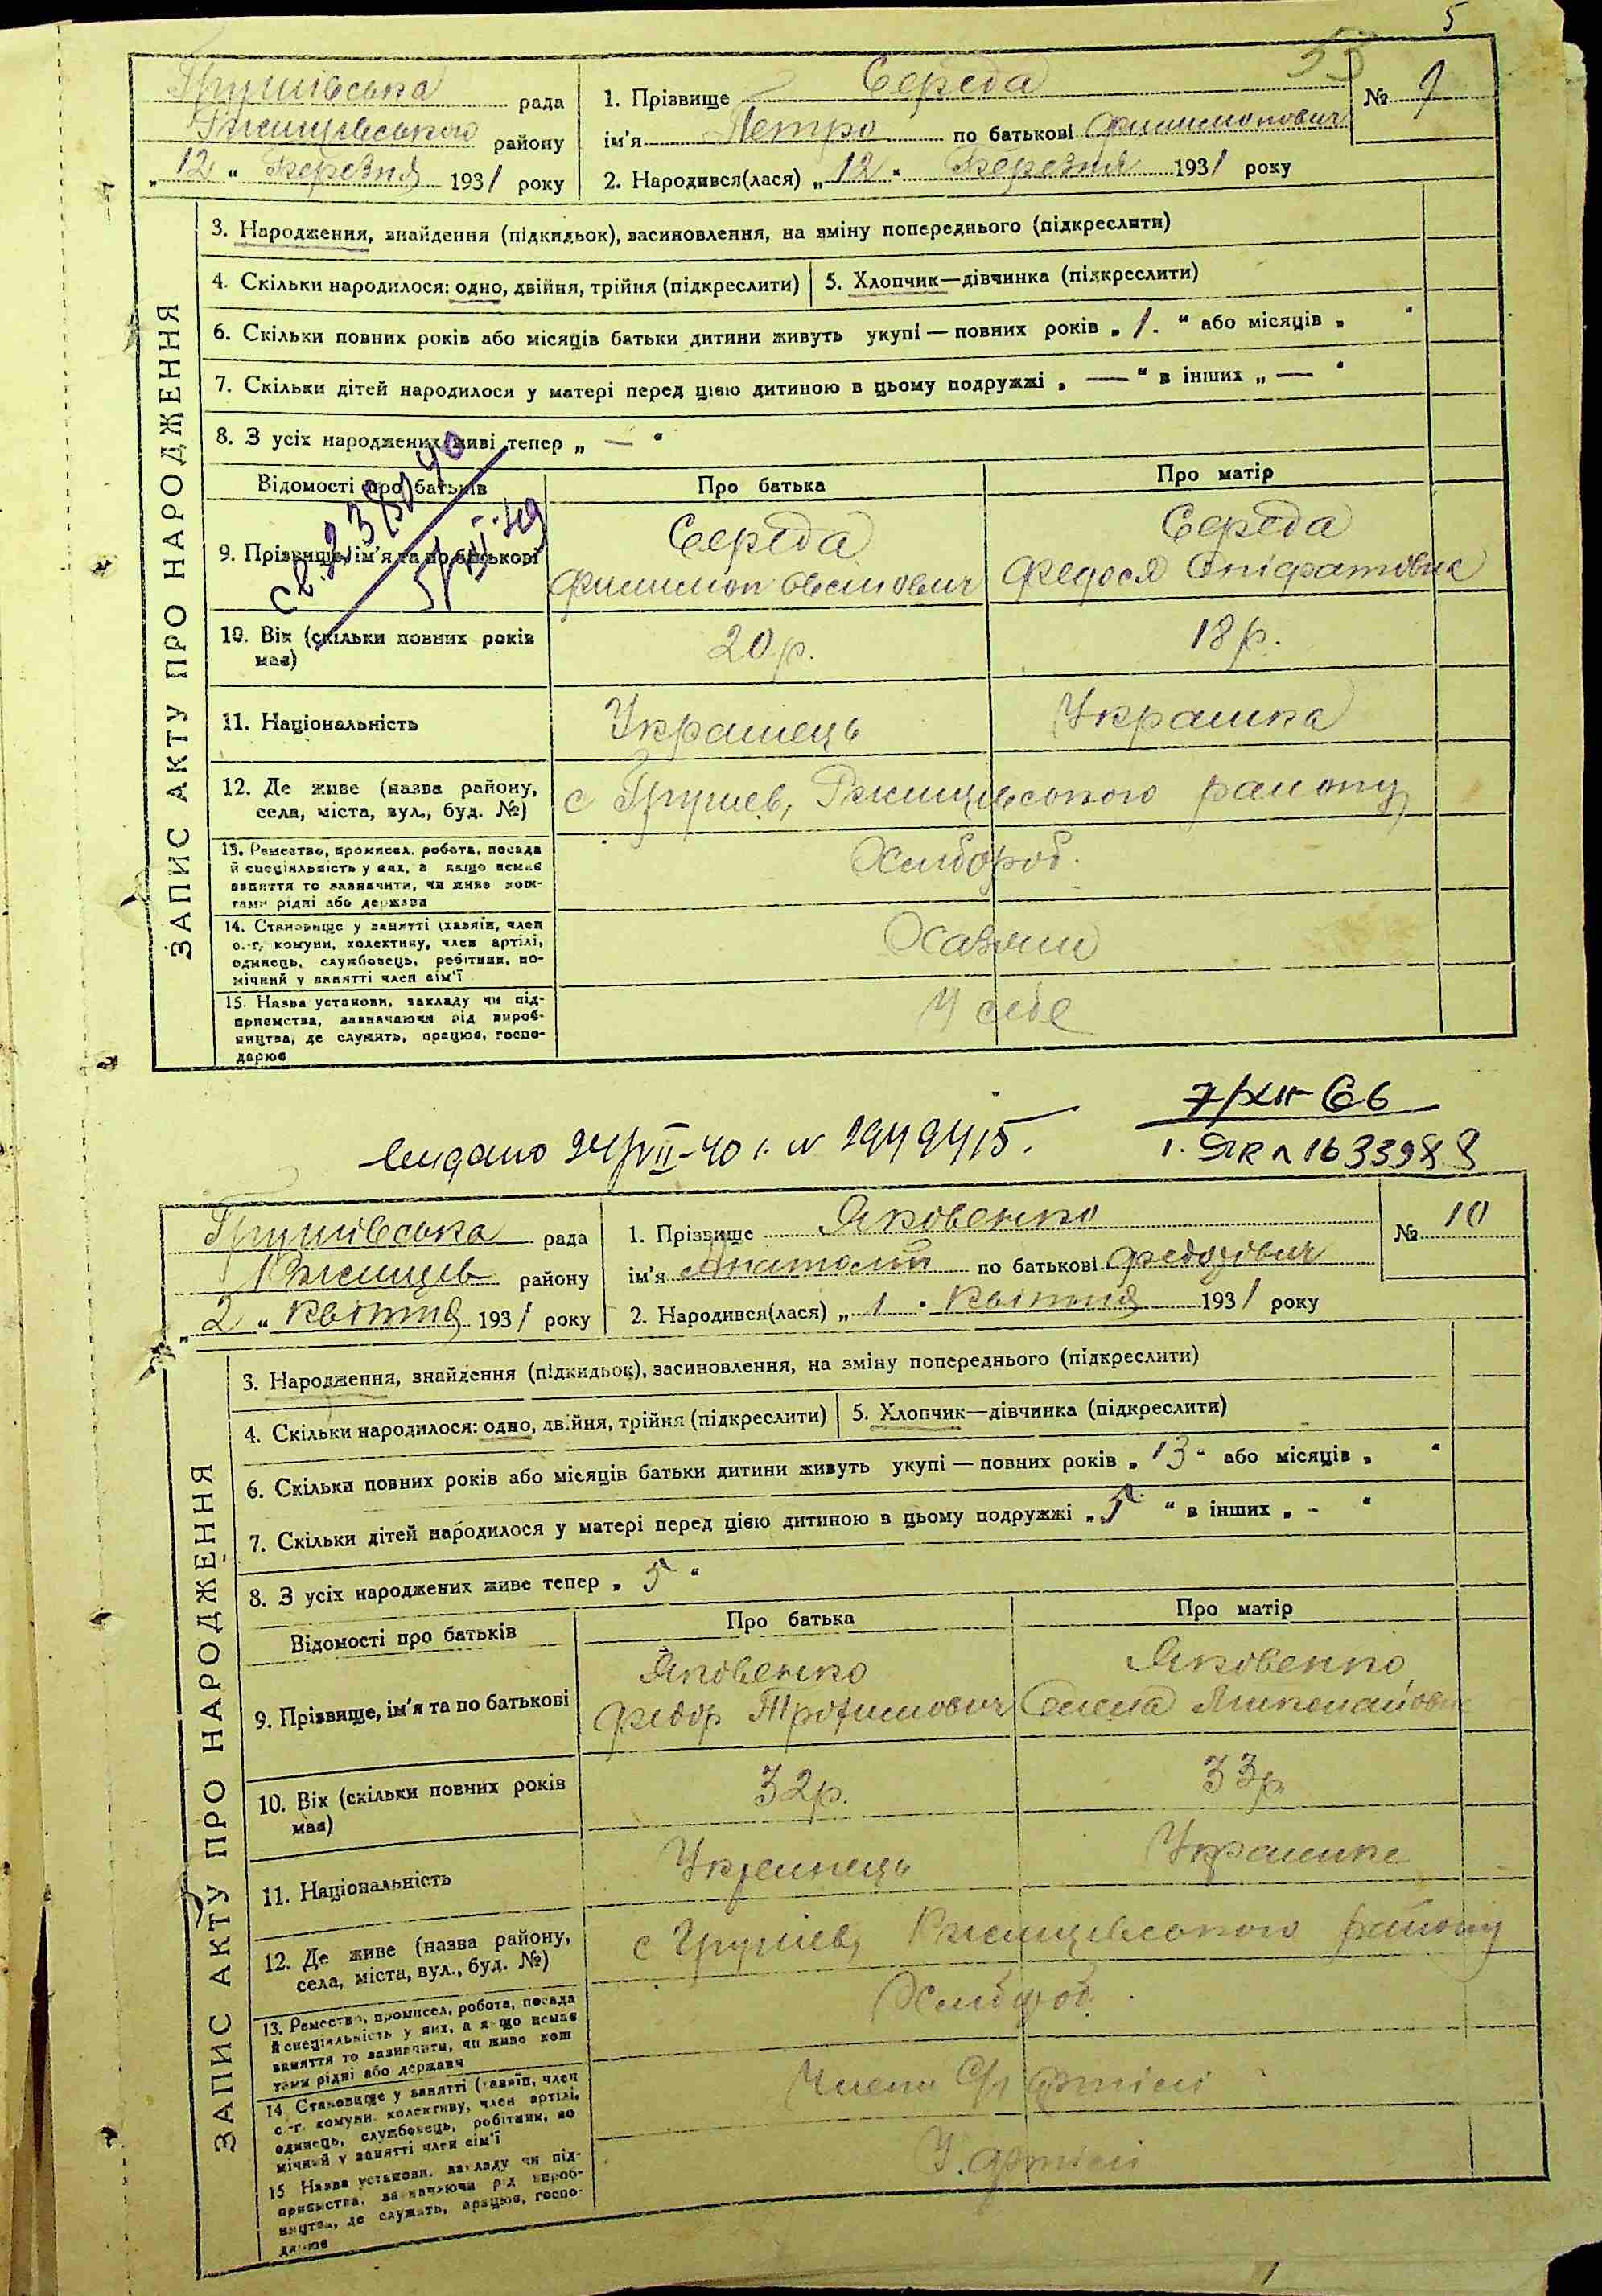 5
53
Грушівська рада
Ржищівського району
„12“ Березня 1931 року
1. Прізвище Середа
№ 9
ім'я Петро по батькові Филимонович
2. Народився(лася) „12“ Березня 1931 року
ЗАПИС АКТУ ПРО НАРОДЖЕННЯ
3. Народження, знайдення (підкидьок), засиновлення, на зміну попереднього (підкреслити)
4. Скільки народилося: одно, двійня, трійня (підкреслити)
5. Хлопчик—дівчинка (підкреслити)
6. Скільки повних років або місяців батьки дитини живуть укупі — повних років „1.“ або місяців „ “
7. Скільки дітей народилося у матері перед цією дитиною в цьому подружжі „—“ в інших „—“
8. З усіх народжених живі тепер „—“
Відомості про батьків
Про батька
Про матір
9. Прізвище, ім'я та по батькові
Середа
Филимон Овсійович
Середа
Федося Єпіфатовна
10. Вік (скільки повних років
має)
20 р.
18 р.
11. Національність
Українець
Українка
12. Де живе (назва району,
села, міста, вул., буд. №)
с Грушев, Ржищівського району
13. Ремество, промисел, робота, посада
й спеціяльність у них, а якщо немає
заняття то зазначити, чи живе кош-
тами рідні або держави
Хлибороб.
14. Становище у занятті (хазяїн, член
с.-г. комуни, колективу, член артілі,
одинець, службовець, робітник, по-
мічний у занятті член сім'ї
Хазяїн
15. Назва установи, закладу чи під-
приємства, зазначаючи рід вироб-
ництва, де служить, працює, госпо-
дарює
У себе
7/XII-66
видано 24/VII-40 г. №
1. ЯК № 1633988
Грушівська рада
Ржищев району
„2“ Квітня 1931 року
1. Прізвище Яковенко
№ 10
ім'я Анатолій по батькові Федорович
2. Народився(лася) „1“ Квітня 1931 року
ЗАПИС АКТУ ПРО НАРОДЖЕННЯ
3. Народження, знайдення (підкидьок), засиновлення, на зміну попереднього (підкреслити)
4. Скільки народилося: одно, двійня, трійня (підкреслити)
5. Хлопчик—дівчинка (підкреслити)
6. Скільки повних років або місяців батьки дитини живуть укупі — повних років „13“ або місяців „ “
7. Скільки дітей народилося у матері перед цією дитиною в цьому подружжі „5“ в інших „-“
8. З усіх народжених живе тепер „5“
Відомості про батьків
Про батька
Про матір
9. Прізвище, ім'я та по батькові
Яковенко
Федор Трофимович
Яковенко
Олена
10. Вік (скільки повних років
має)
32 р.
33 р.
11. Національність
Українець
Українка
12. Де живе (назва району,
села, міста, вул., буд. №)
с Грушев, Ржищівського району
13. Ремество, промисел, робота, посада
й спеціяльність у них, а якщо немає
заняття то зазначити, чи живе кош
тами рідні або держави
Хлибороб.
14. Становище у занятті (хазяїн, член
с.-г. комуни, колективу, член артілі,
одинець, службовець, робітник, по
мічний у занятті член сім'ї
Член С/г артілі
15. Назва установи, закладу чи під-
приємства, зазначаючи рід вироб-
ництва, де служить, працює, госпо-
дарює
У артілі